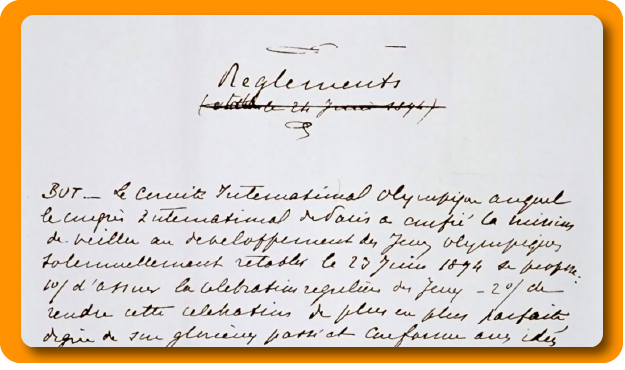 Reglements
(etablis le 24 Juin 1894)
BUT _ Le comité International Olympique auquel
le congrès International de Paris a confié la mission
de veiller au developpement des Jeux Olympiques
solennellement rétablis le 23 Juin 1894 se propose:
1o/ d'assurer la celebration reguliere des Jeux _ 2o/ de
rendre cette celebration de plus en plus parfaite
digne de son glorieux passé et conforme aux idées